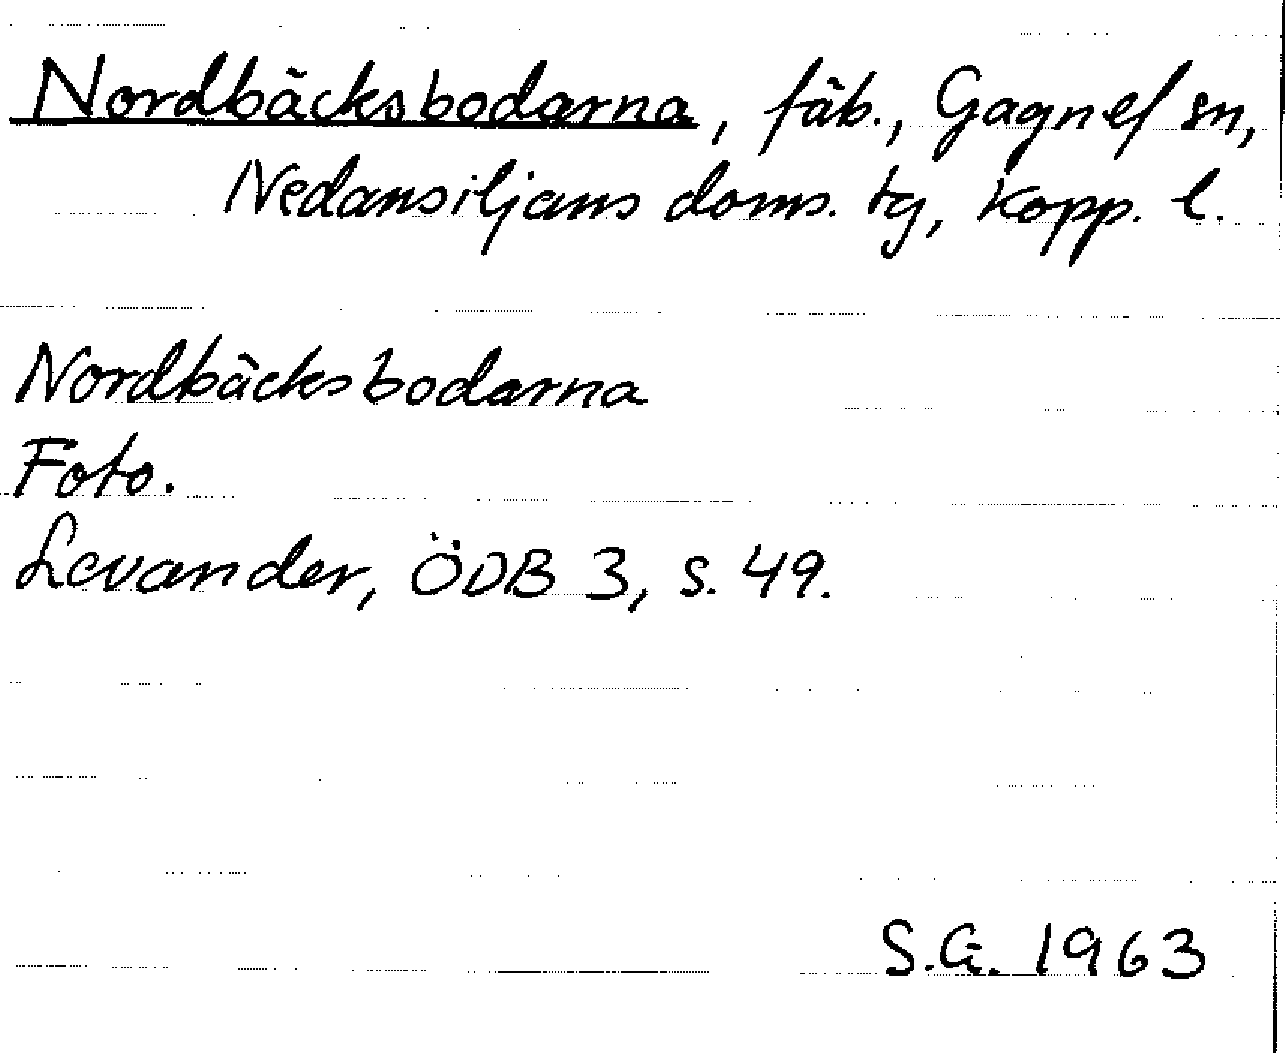 Nordbäcksbodarna, fäb., Gagnef sn,
Nedansiljans doms. tg, Kopp. l.
Nordbäcksbodarna
Foto.
Levander, ÖDB 3, s. 49.
S.G. 1963